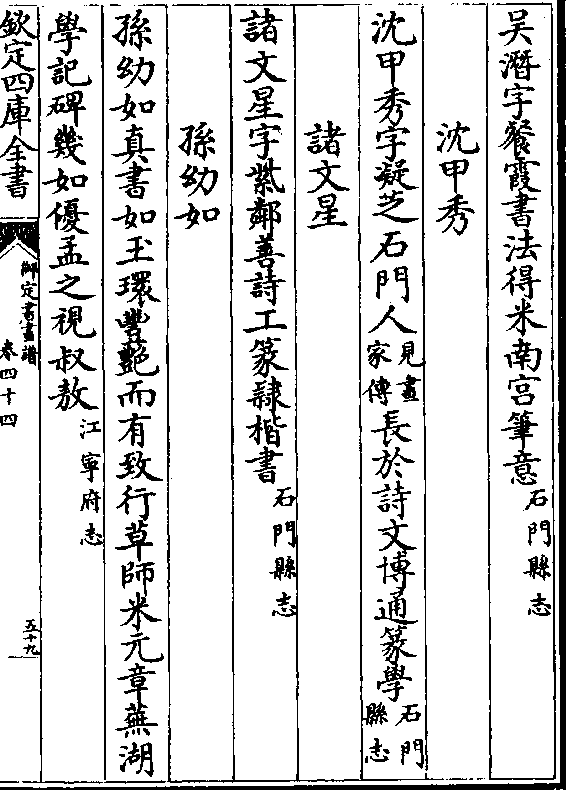 吴潛字餐霞書法得米南宫筆意石門縣志
沈甲秀
沈甲秀字凝芝石門人見畫家傳長於詩文博通篆學石門縣志
諸文星
諸文星字紫鄰善詩工篆隸楷書石門縣志
孫幼如
孫幼如真書如玉環豐艷而有致行草師米元章蕪湖
學記碑幾如優孟之視叔敖江寧府志
欽定四庫全書
御定書畫譜
卷四十四
五十九